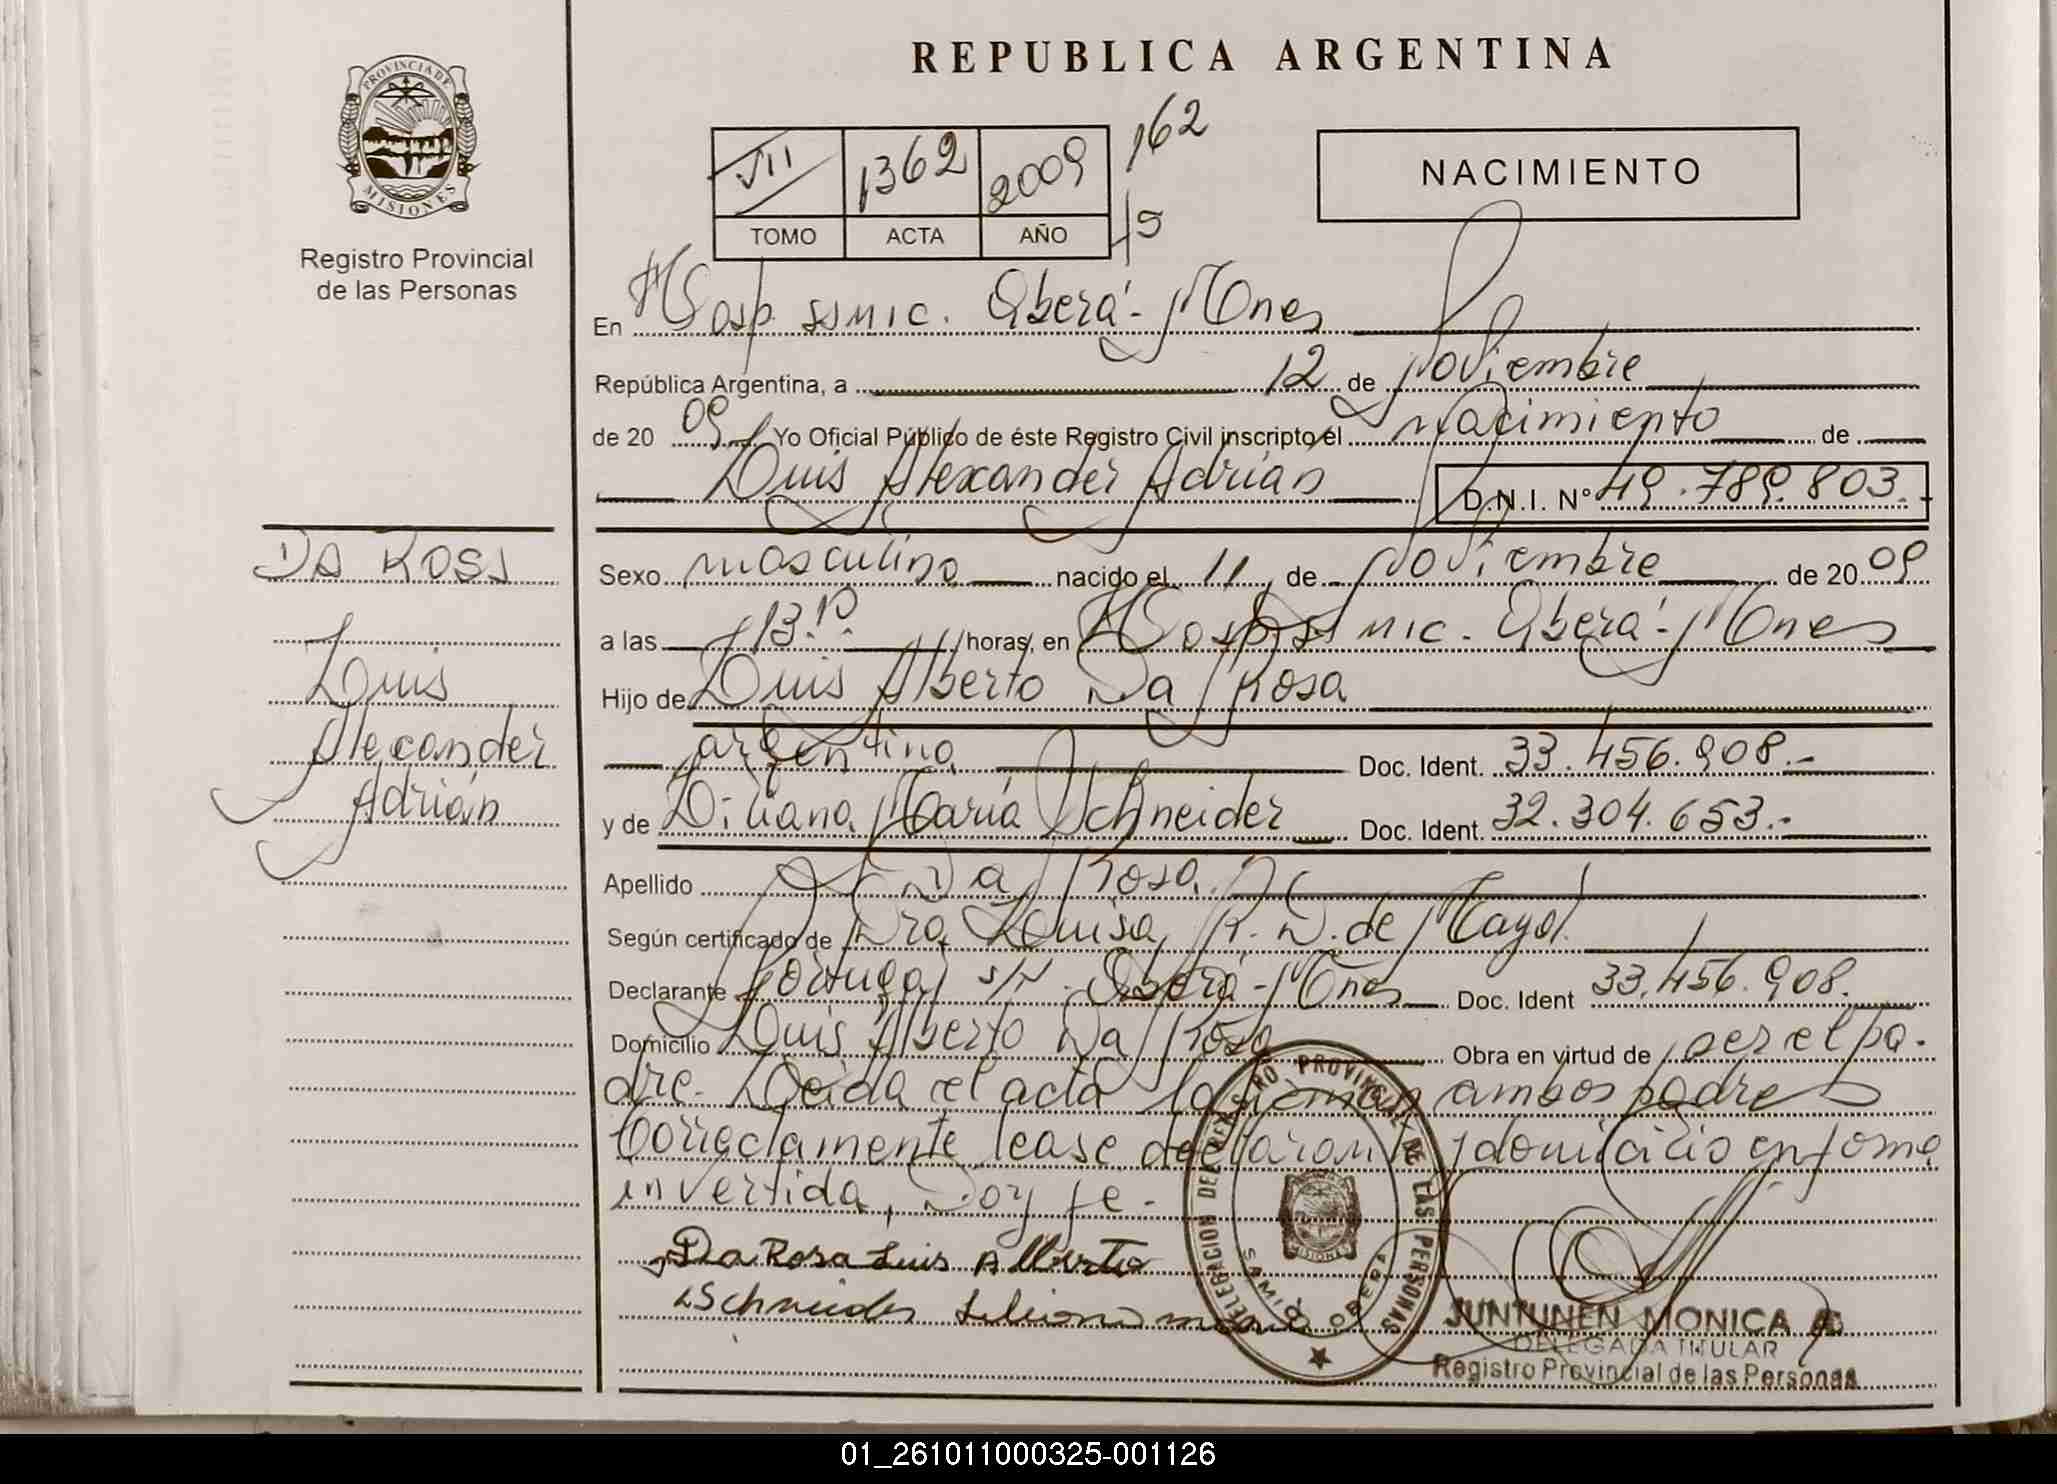 PROVINCIA DE
MISIONES
Registro Provincial
de las Personas
REPUBLICA ARGENTINA
VII 1362 2009 162
TOMO ACTA AÑO
NACIMIENTO
En Hosp. ssmic. Oberá - Mnes
República Argentina, a 12 de Noviembre
de 20 09 Yo Oficial Público de éste Registro Civil inscripto el nacimiento de
Luis Alexander Adrián D.N.I. Nº 49.789.803.-
DA ROSA
Luis
Alexander
Adrián
Sexo masculino nacido el 11 de Noviembre de 20 09
a las 13.10. horas, en Hosp. ssmic. Oberá - Mnes
Hijo de Luis Alberto Da Rosa
argentino Doc. Ident. 33.456.908.-
y de Liliana María Schneider Doc. Ident. 32.304.653.-
Apellido Da Rosa.
Según certificado de Dra. Luisa R. D. de Mayol
Declarante Portugal s/n. Oberá - Mnes Doc. Ident 33.456.908.
Domicilio Luis Alberto Da Rosa Obra en virtud de ser el pa-
dre. Leída el acta la firman ambos padres
Correctamente léase declarante y domicilio en forma
invertida, Doy fe.-
Da Rosa Luis Alberto
Schneider Liliana maria
DELEGACION DEL REGISTRO PROVINCIAL DE LAS PERSONAS
SAMIC OBERA
MISIONES
JUNTUNEN MONICA
DELEGADA TITULAR
Registro Provincial de las Personas
01_261011000325-001126